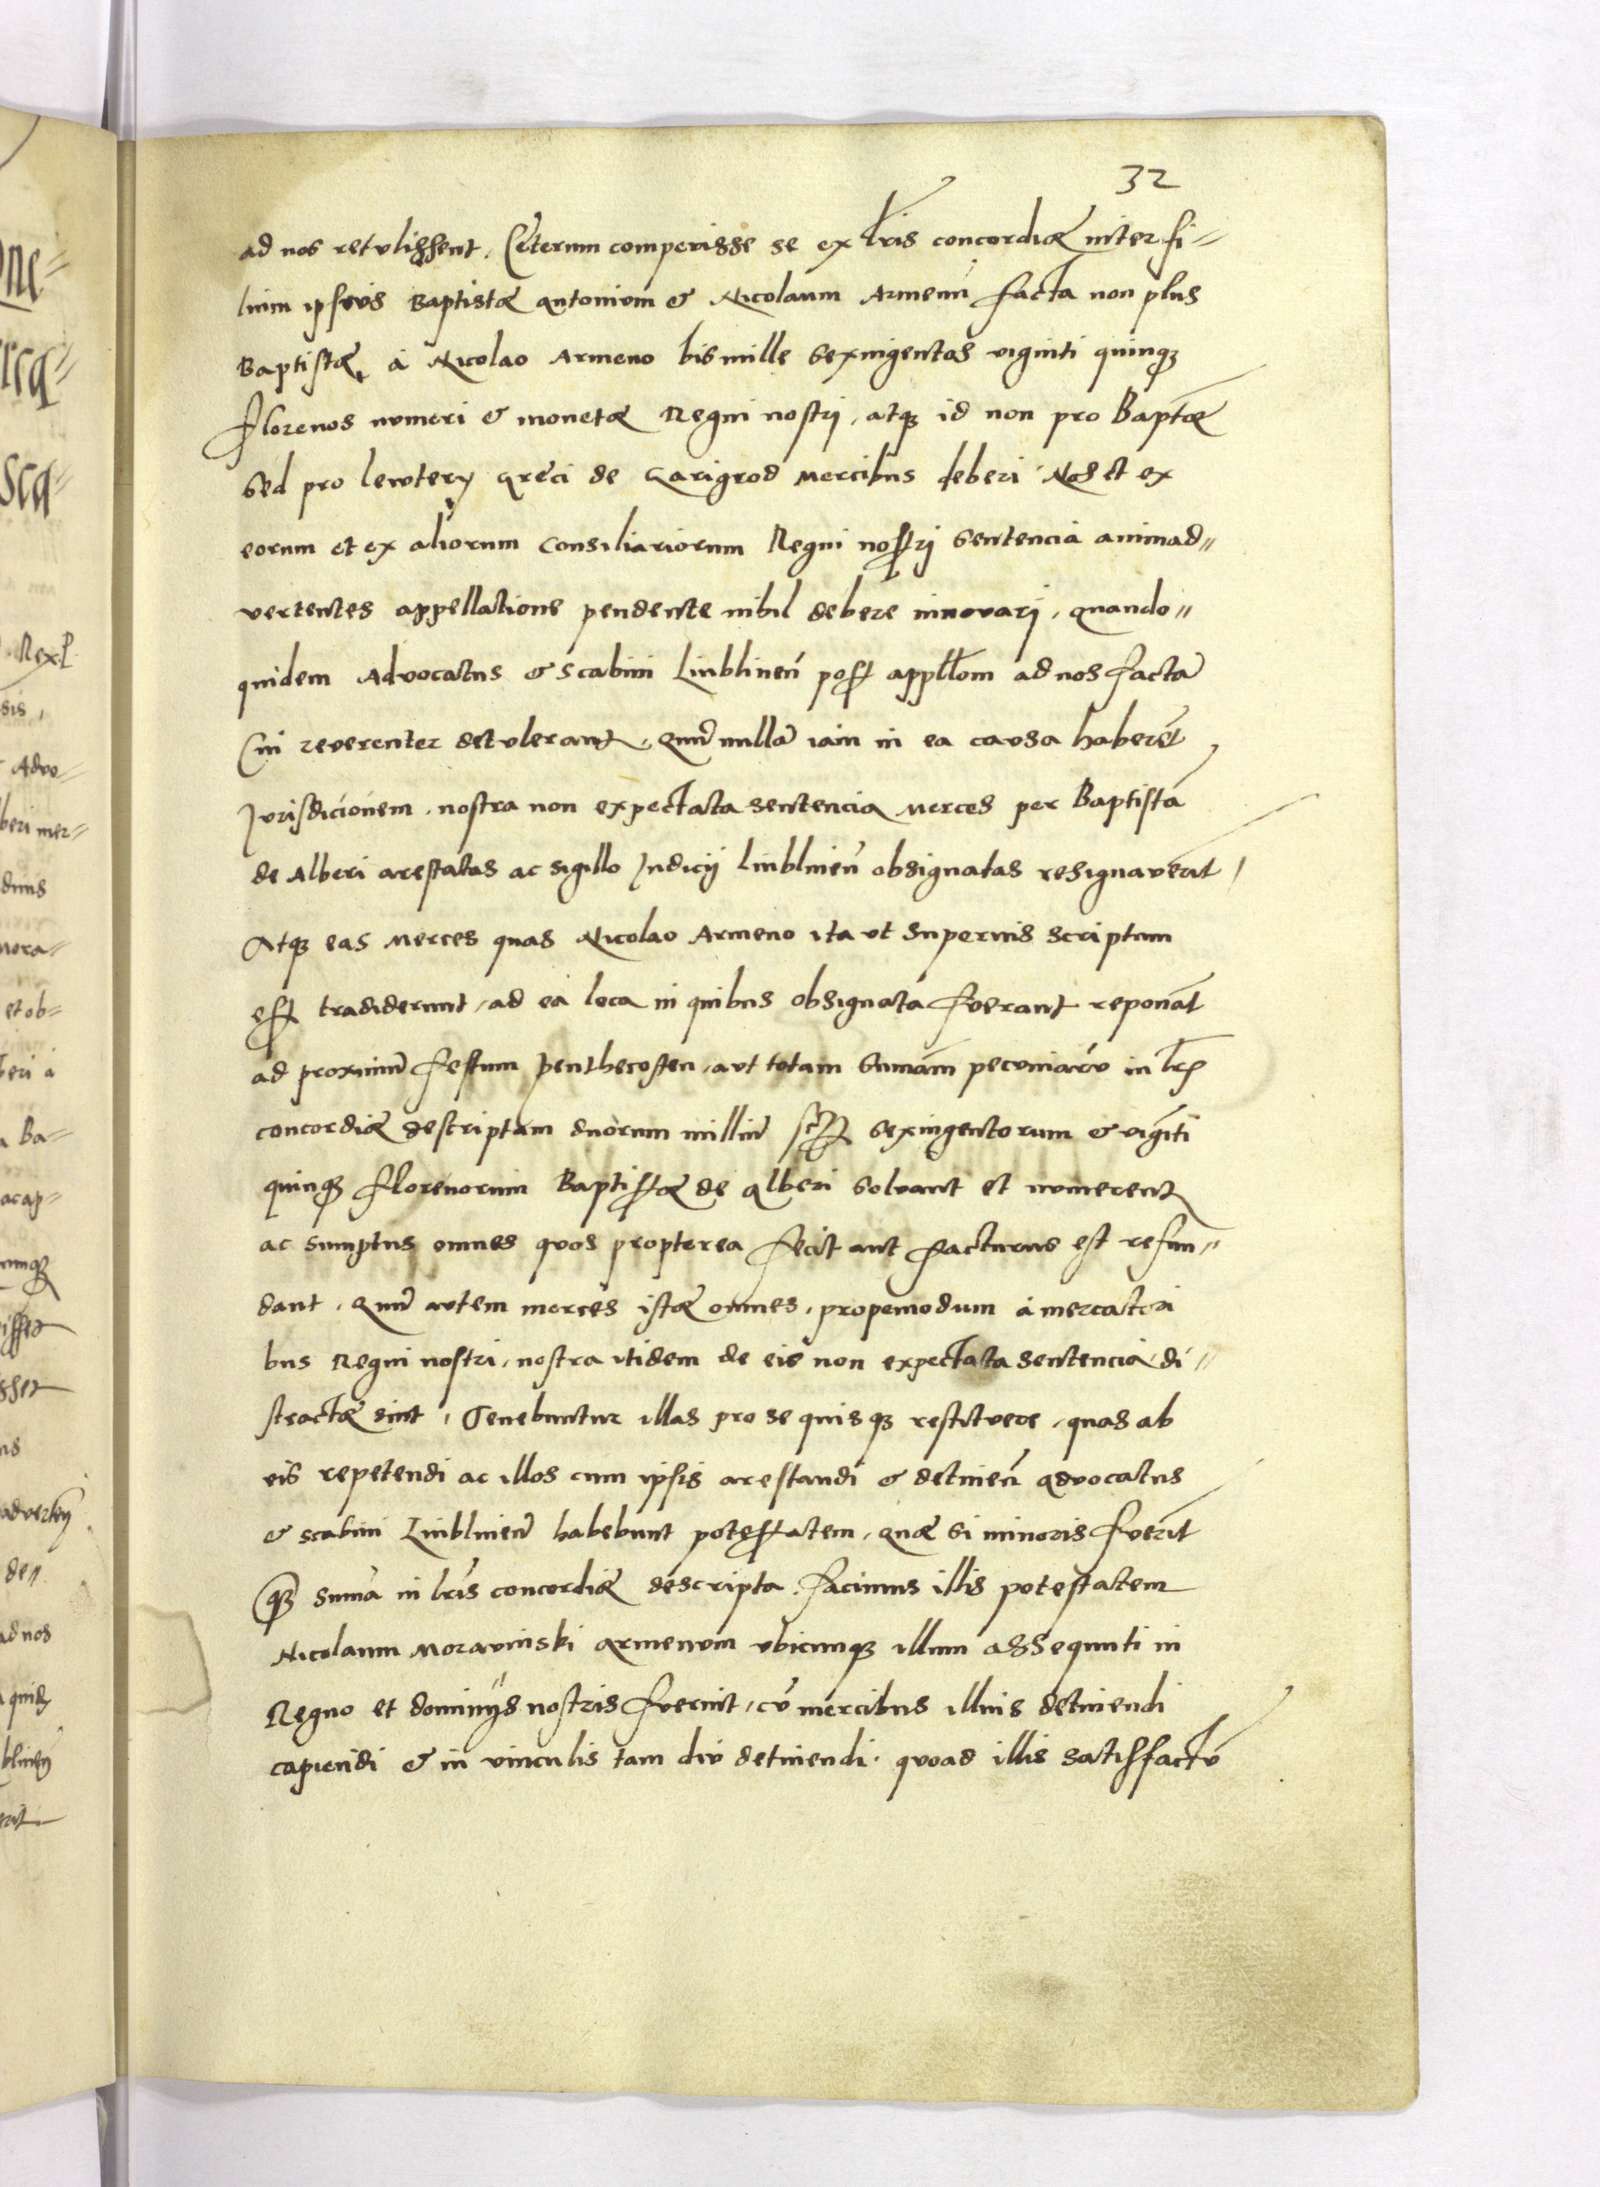 32
ad nos retulissent. Ceterum comperisse se ex lris concordiæ inter fi=
lium ipsius Baptistæ Antonium & Nicolaum Armenũ facta non plus
Baptistæ, à Nicolao Armeno bis mille sexingentos viginti quinqȝ
florenos numeri & monetæ Regni nostri, atqȝ id non pro Baptæ
sed pro lewtery greci de Carigrod mercibus deberi. Nos et ex
eorum et ex aliorum Consiliariorum Regni nostrj sentencia animad=
vertentes appellatione pendente nihil debere innovarj, quando=
quidem Advocatus & scabini Lublineñ post appllom ad nos factã
Cui reverenter detulerant, Qum nullã iam in ea causa haberẽt
Jurisdicionem, nostra non expectata sentencia merces per Baptistã
de Alberi arestatas ac sigillo Judicij Lublineñ obsignatas resignaverĩt,
Atqȝ eas merces quas Nicolao Armeno ita ut superius scriptum
est tradiderunt, ad ea loca in quibus obsignata fuerant reponãt
ad proximũ festum penthecosten, aut totam sumãm pecuniarũ in lris
concordiæ descriptam duorum milliũ sclt sexingentorum & vigĩti
quinqȝ florenorum Baptistæ de Alberi solvant et numerent
ac sumptus omnes quos propterea fecit aut facturus est refun=
dant. Qum autem merces istæ omnes, propemodum à mercatori
bus Regni nostri, nostra itidem de eis non expectata sentencia di=
stractæ sint, Tenebuntur illas pro se quisqȝ restituere, quas ab
eis repetendi ac illos cum ipsis arestandi & detineñ Advocatus
& scabini Lublineñ habebunt potestatem, quæ si minoris fuerĩt
qȝ summa in lris concordiæ descripta. Facimus illis potestatem
Nicolaum Moravinski Armenum ubicunqȝ illum assequuti in
Regno et dominijs nostris fuerint, cũ mercibus illius detinendi
capiendi & in vinculis tam diu detinendi, quoad illis satisfactũ